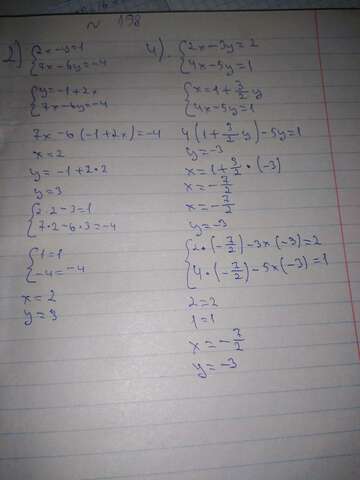 ~ 198
2) {2x-y=1
{7x-6y=-4
{y=-1+2x
{7x-6y=-4
7x-6(-1+2x)=-4
x=2
y=-1+2·2
y=3
{2·2-3=1
{7·2-6·3=-4
{1=1
{-4=-4
x=2
y=3
4) {2x-3y=2
{4x-5y=1
{x=1+3/2y
{4x-5y=1
4(1+3/2y)-5y=1
y=-3
x=1+3/2·(-3)
x=-7/2
x=-7/2
y=-3
{2·(-7/2)-3x(-3)=2
{4·(-7/2)-5x(-3)=1
2=2
1=1
x=-7/2
y=-3